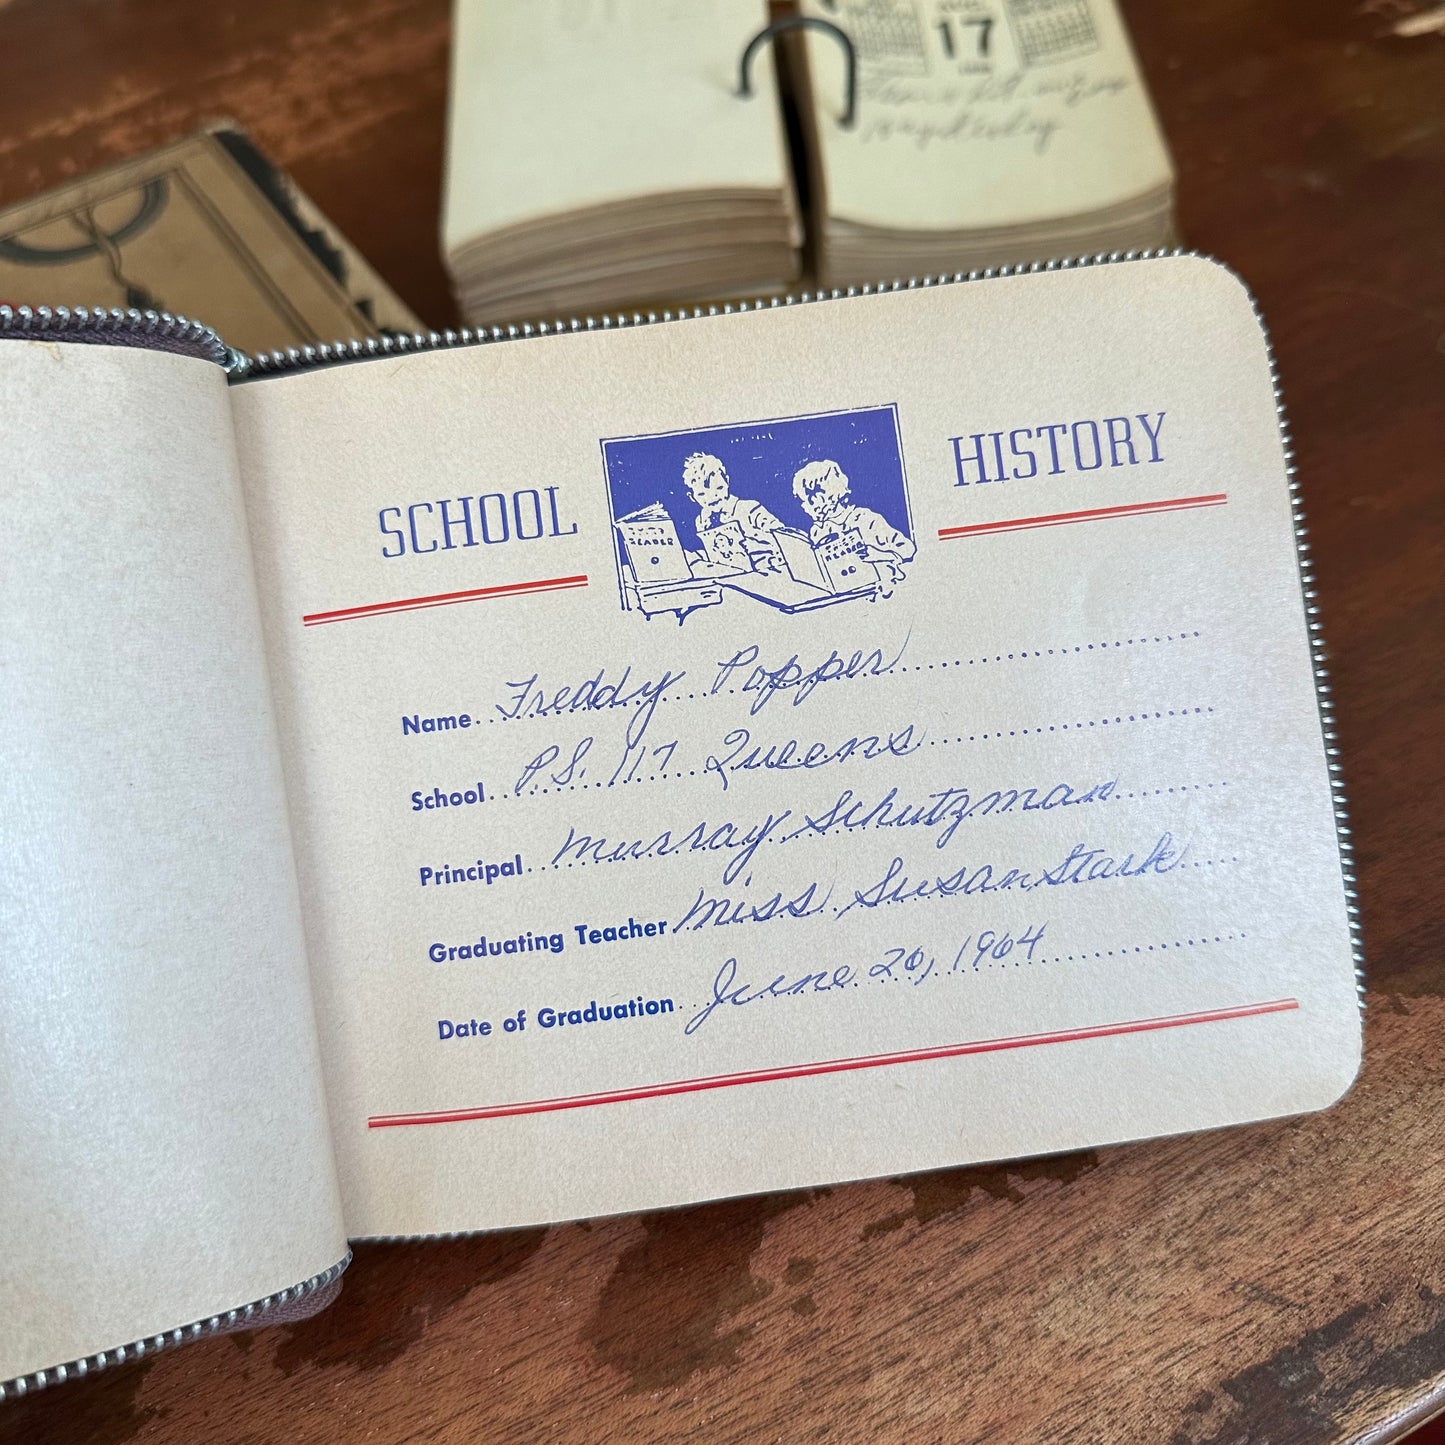 17
SCHOOL HISTORY
READER
READER
Name Freddy Popper
School P.S. 117 Queens
Principal Murray Schutzman
Graduating Teacher Miss Susan Stark
Date of Graduation June 26, 1964